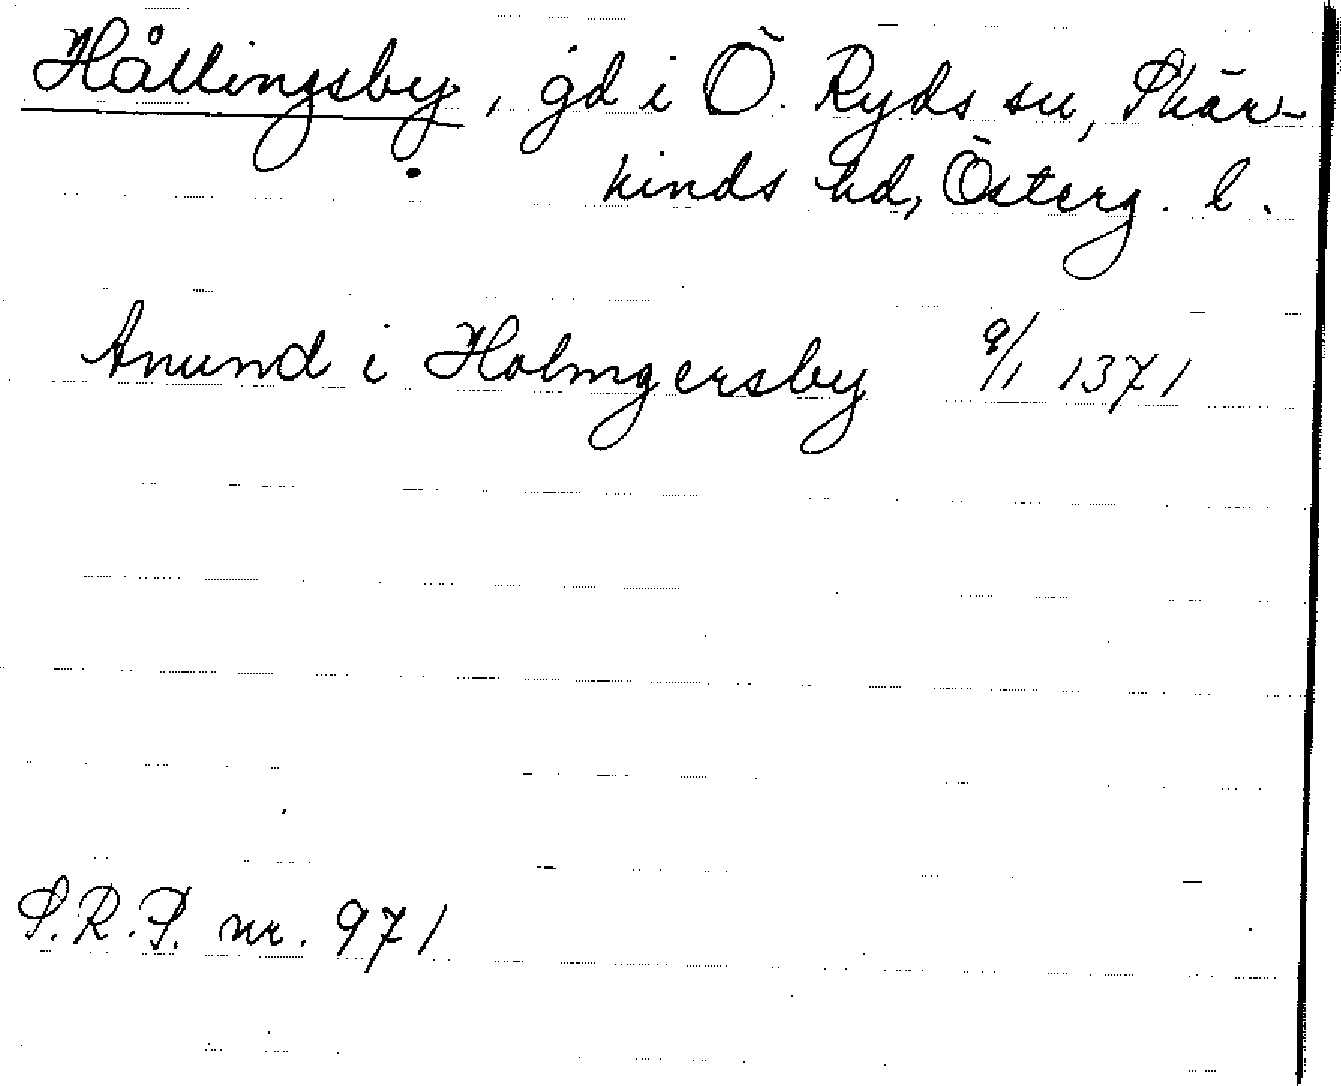 Hållingsby, gd i Ö. Ryds sn, Skär-
kinds hd, Österg. l.
Anund i Holmgersby 9/1 1371
S.R.P. nr. 971